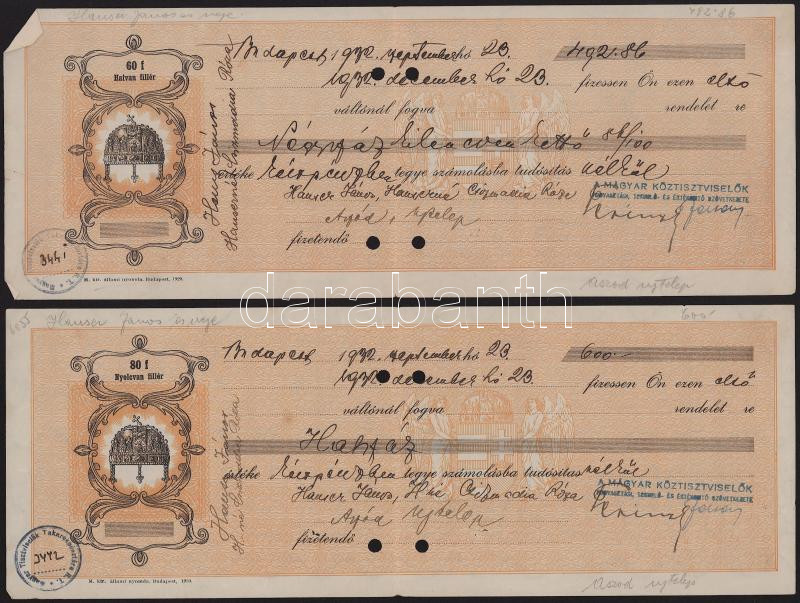 Hauser János és neje
492.86
60 f
Hatvan fillér
Budapest 1932. szeptember hó 23. 492.86
1932. december hó 23. fizessen Ön ezen első
váltónál fogva rendelet re
Négyszáz kilencvenkettő 86/100
értéke készpénzben tegye számolásba tudósítás nélkül
Hauser János, Hauserné Csizmadia Róza
A MAGYAR KÖZTISZTVISELŐK
FOGYASZTÁSI, TERMELŐ- ÉS ÉRTÉKESÍTŐ SZÖVETKEZETE
Aszód, Ujtelep
fizetendő
Hauser János
Hauserné Csizmadia Róza
3441
M. kir. állami nyomda. Budapest, 1929.
Aszod ujtelep
darabanth
Hauser János és neje
600
80 f
Nyolcvan fillér
Budapest 1932. szeptember hó 23. 600.-
1932. december hó 23. fizessen Ön ezen első
váltónál fogva rendelet re
Hatszáz
értéke készpénzben tegye számolásba tudósítás nélkül
Hauser János, H.né Csizmadia Róza
A MAGYAR KÖZTISZTVISELŐK
FOGYASZTÁSI, TERMELŐ- ÉS ÉRTÉKESÍTŐ SZÖVETKEZETE
Aszód Ujtelep
fizetendő
Hauser János
Magyar Tisztviselők Takarékpénztára R.T.
3442
M. kir. állami nyomda. Budapest, 1930.
Aszod ujtelep